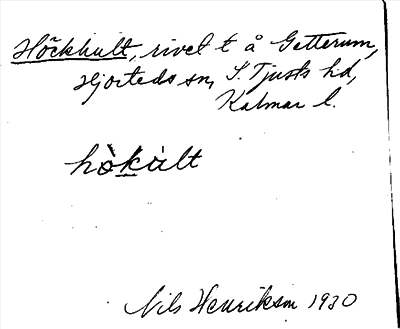 Höckhult, rivet t å Getterum,
Hjorteds sn, S. Tjusts hd,
Kalmar l.
hò̀kùlt
Nils Henrikson 1930